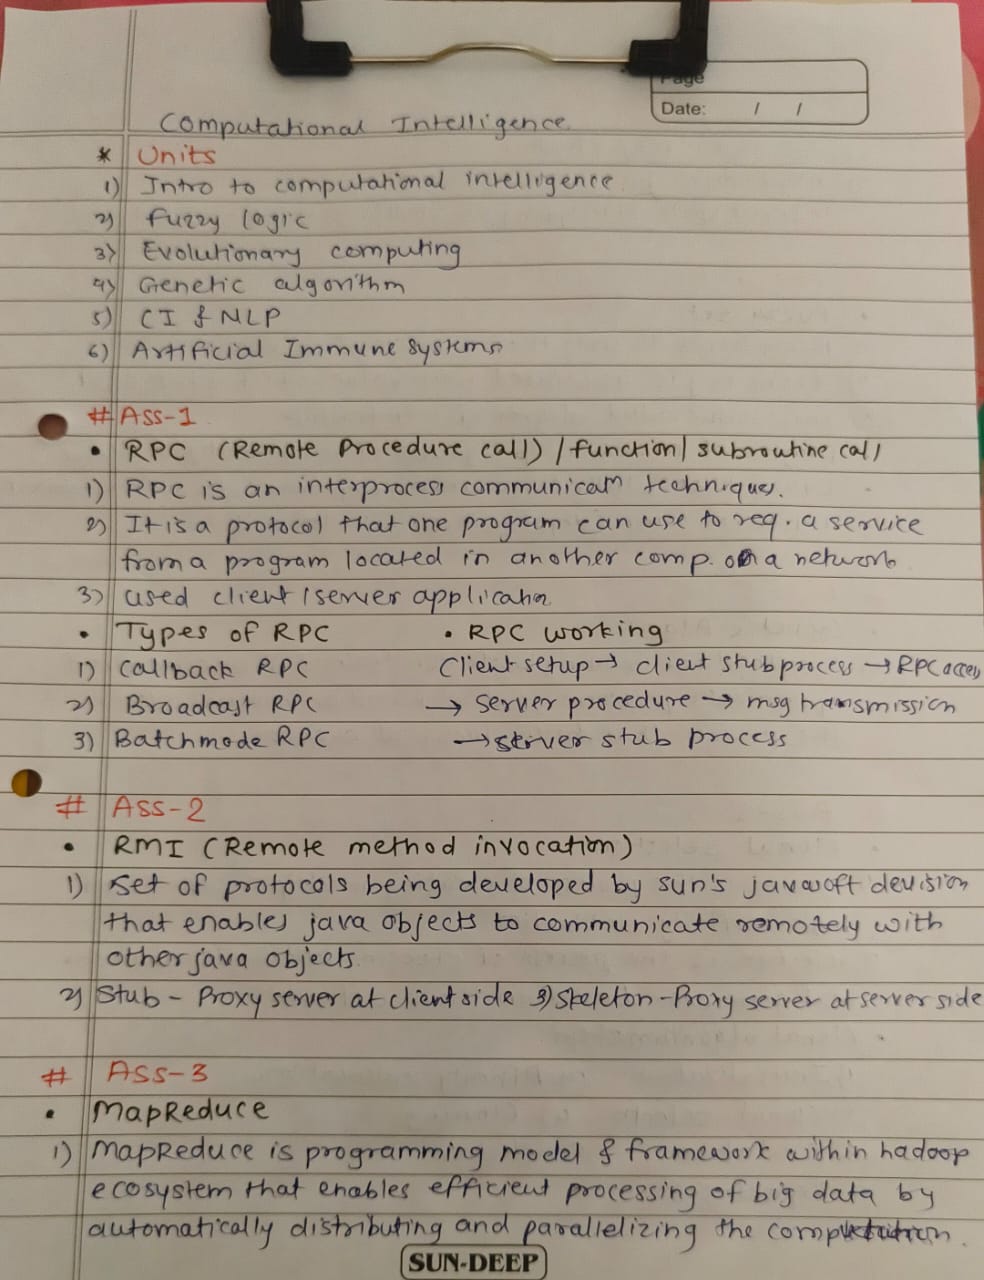 Page
Date: / /
Computational Intelligence.
* Units
1) Intro to computational intelligence
2) Fuzzy logic
3) Evolutionary computing
4) Genetic algorithm
5) CI & NLP
6) Artificial Immune Systems
# Ass-1
• RPC (Remote Procedure call) / function / subroutine call
1) RPC is an interprocess communicatn techniques.
2) It is a protocol that one program can use to req. a service
from a program located in another comp. on a network
3) used client / server applicatn
• Types of RPC • RPC working
1) Callback RPC Client setup → client stub process → RPC access
2) Broadcast RPC → Server procedure → msg transmission
3) Batchmode RPC → server stub process
# Ass-2
• RMI (Remote method invocation)
1) Set of protocols being developed by sun's javasoft devision
that enables java objects to communicate remotely with
other java objects
2) Stub - Proxy server at client side 3) Skeleton - Proxy server at server side
# Ass-3
• MapReduce
1) MapReduce is programming model & framework within hadoop
ecosystem that enables efficient processing of big data by
automatically distributing and parallelizing the computation.
SUN-DEEP